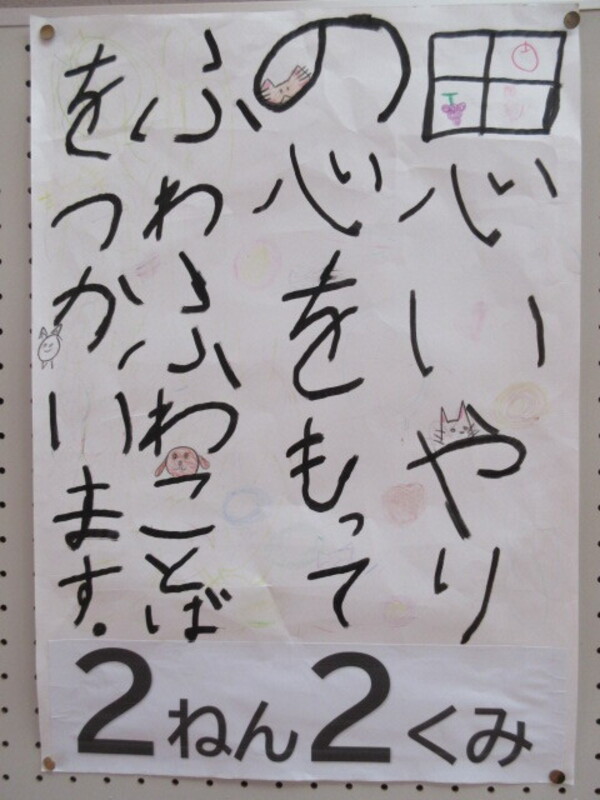 思いやり
の心をもって
ふわふわことば
をつかいます.
2ねん2くみ